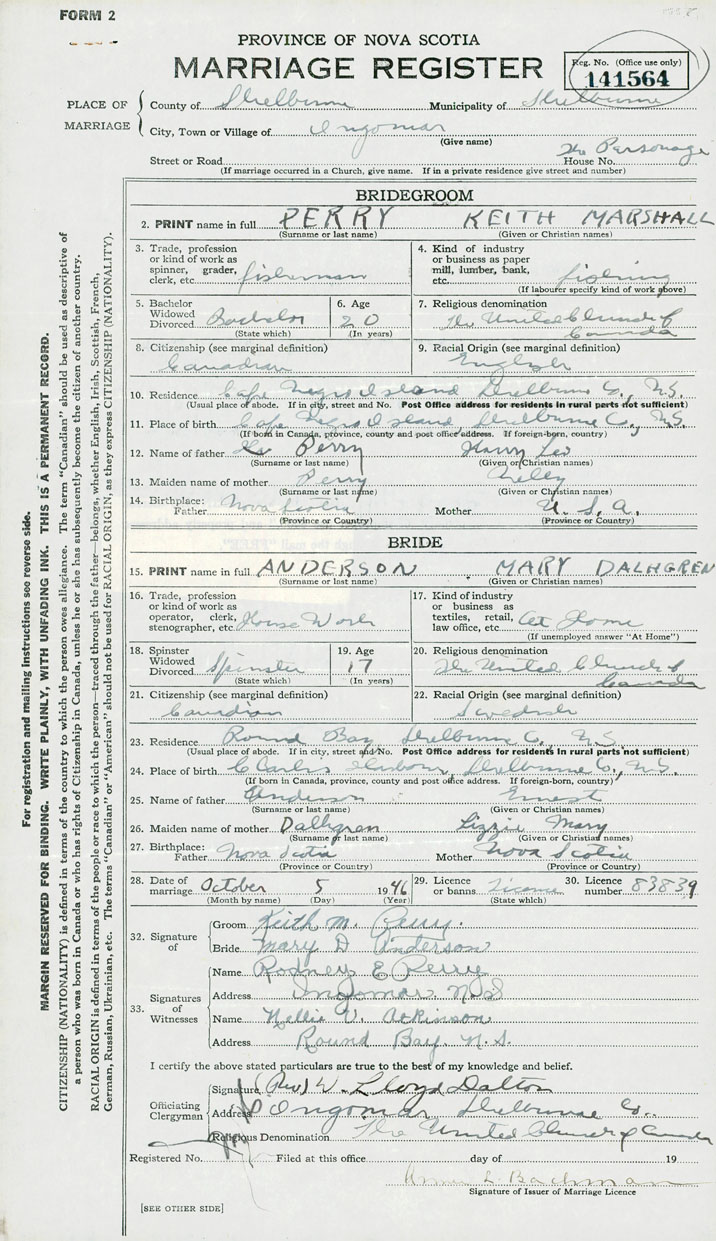 FORM 2
PROVINCE OF NOVA SCOTIA
MARRIAGE REGISTER
Reg. No. (Office use only)
141564
PLACE OF MARRIAGE
County of Shelburne Municipality of Shelburne
City, Town or Village of Ingomar
(Give name)
The Parsonage
Street or Road House No.
(If marriage occurred in a Church, give name. If in a private residence give street and number)
BRIDEGROOM
2. PRINT name in full PERRY KEITH MARSHALL
(Surname or last name) (Given or Christian names)
3. Trade, profession or kind of work as spinner, grader, clerk, etc. fisherman
4. Kind of industry or business as paper mill, lumber, bank, etc. fishing
(If labourer specify kind of work above)
5. Bachelor Widowed Divorced Bachelor
(State which)
6. Age 20
(In years)
7. Religious denomination The United Church of Canada
8. Citizenship (see marginal definition) Canadian
9. Racial Origin (see marginal definition) English
10. Residence Cape Negro Island Shelburne Co., N.S.
(Usual place of abode. If in city, street and No. Post Office address for residents in rural parts not sufficient)
11. Place of birth Cape Negro Island Shelburne Co., N.S.
(If born in Canada, province, county and post office address. If foreign-born, country)
12. Name of father Perry Harry Leo
(Surname or last name) (Given or Christian names)
13. Maiden name of mother Perry Nelly
(Surname or last name) (Given or Christian names)
14. Birthplace: Father Nova Scotia Mother U.S.A.
(Province or Country) (Province or Country)
BRIDE
15. PRINT name in full ANDERSON MARY DALHGREN
(Surname or last name) (Given or Christian names)
16. Trade, profession or kind of work as operator, clerk, stenographer, etc. House Work
17. Kind of industry or business as textiles, retail, law office, etc. At Home
(If unemployed answer "At Home")
18. Spinster Widowed Divorced Spinster
(State which)
19. Age 17
(In years)
20. Religious denomination The United Church of Canada
21. Citizenship (see marginal definition) Canadian
22. Racial Origin (see marginal definition) Swedish
23. Residence Round Bay Shelburne Co., N.S.
(Usual place of abode. If in city, street and No. Post Office address for residents in rural parts not sufficient)
24. Place of birth Harbour, Shelburne Co., N.S.
(If born in Canada, province, county and post office address. If foreign-born, country)
25. Name of father Anderson Ernest
(Surname or last name) (Given or Christian names)
26. Maiden name of mother Dalhgren Lizzie Mary
(Surname or last name) (Given or Christian names)
27. Birthplace: Father Nova Scotia Mother Nova Scotia
(Province or Country) (Province or Country)
28. Date of marriage October 5 1946
(Month by name) (Day) (Year)
29. Licence or banns License
(State which)
30. Licence number 83839
32. Signature of
Groom Keith M. Perry.
Bride Mary D Anderson
33. Signatures of Witnesses
Name Rodney E Perry
Address Ingomar, N.S
Name Nellie V. Atkinson
Address Round Bay. N.S.
I certify the above stated particulars are true to the best of my knowledge and belief.
Officiating Clergyman
Signature (Rev) W. Lloyd Dalton
Address Ingomar, Shelburne Co.
Religious Denomination The United Church of Canada
Registered No. Filed at this office day of 19
L Bachman
Signature of Issuer of Marriage Licence
[SEE OTHER SIDE]
For registration and mailing instructions see reverse side.
MARGIN RESERVED FOR BINDING. WRITE PLAINLY, WITH UNFADING INK. THIS IS A PERMANENT RECORD.
CITIZENSHIP (NATIONALITY) is defined in terms of the country to which the person owes allegiance. The term "Canadian" should be used as descriptive of
a person who was born in Canada or who has rights of Citizenship in Canada, unless he or she has subsequently become the citizen of another country.
RACIAL ORIGIN is defined in terms of the people or race to which the person—traced through the father—belongs, whether English, Irish, Scottish, French,
German, Russian, Ukrainian, etc. The terms "Canadian" or "American" should not be used for RACIAL ORIGIN, as they express CITIZENSHIP (NATIONALITY).